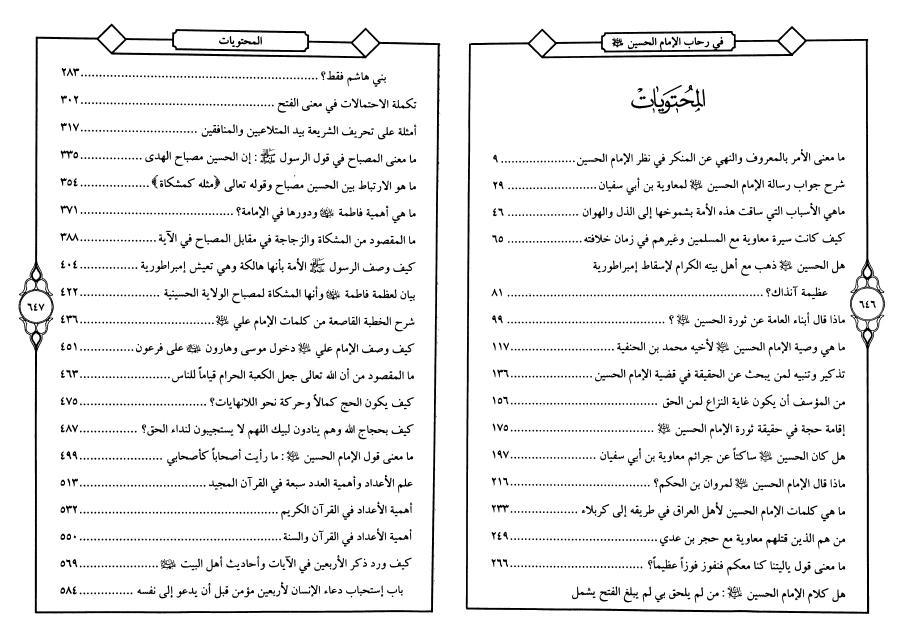 في رحاب الإمام الحسين ﷺ
المحتويات
ما معنى الأمر بالمعروف والنهي عن المنكر في نظر الإمام الحسين ..................... ٩
شرح جواب رسالة الإمام الحسين لمعاوية بن أبي سفيان ..................... ٢٩
ماهي الأسباب التي ساقت هذه الأمة بشموخها إلى الذل والهوان ..................... ٤٦
كيف كانت سيرة معاوية مع المسلمين وغيرهم في زمان خلافته..................... ٦٥
هل الحسين ذهب مع أهل بيته الكرام لإسقاط إمبراطورية
عظيمة آنذاك؟ ..................... ٨١
ماذا قال أبناء العامة عن ثورة الحسين ؟ ..................... ٩٩
ما هي وصية الإمام الحسين لأخيه محمد بن الحنفية ..................... ١١٧
تذكير وتنبيه لمن يبحث عن الحقيقة في قضية الإمام الحسين..................... ١٣٦
من المؤسف أن يكون غاية النزاع لمن الحق ..................... ١٥٦
إقامة حجة في حقيقة ثورة الإمام الحسين ..................... ١٧٥
هل كان الحسين ساكتاً عن جرائم معاوية بن أبي سفيان ..................... ١٩٧
ماذا قال الإمام الحسين لمروان بن الحكم؟ ..................... ٢١٦
ما هي كلمات الإمام الحسين لأهل العراق في طريقه إلى كربلاء ..................... ٢٣٣
من هم الذين قتلهم معاوية مع حجر بن عدي..................... ٢٤٩
ما معنى قول ياليتنا كنا معكم فنفوز فوزاً عظيماً؟ ..................... ٢٦٦
هل كلام الإمام الحسين : من لم يلحق بي لم يبلغ الفتح يشمل
٦٤٦
المحتويات
بني هاشم فقط؟ ..................... ٢٨٣
تكملة الاحتمالات في معنى الفتح ..................... ٣٠٢
أمثلة على تحريف الشريعة بيد المتلاعبين والمنافقين ..................... ٣١٧
ما معنى المصباح في قول الرسول ﷺ : إن الحسين مصباح الهدى ..................... ٣٣٥
ما هو الارتباط بين الحسين مصباح وقوله تعالى ﴿مثله كمشكاة﴾..................... ٣٥٤
ما هي أهمية فاطمة ودورها في الإمامة؟ ..................... ٣٧١
ما المقصود من المشكاة والزجاجة في مقابل المصباح في الآية ..................... ٣٨٨
كيف وصف الرسول ﷺ الأمة بأنها هالكة وهي تعيش إمبراطورية ..................... ٤٠٤
بيان لعظمة فاطمة وأنها المشكاة لمصباح الولاية الحسينية ..................... ٤٢٢
شرح الخطبة القاصعة من كلمات الإمام علي ..................... ٤٣٦
كيف وصف الإمام علي دخول موسى وهارون على فرعون..................... ٤٥١
ما المقصود من أن الله تعالى جعل الكعبة الحرام قياماً للناس..................... ٤٦٣
كيف يكون الحج كمالاً وحركة نحو اللانهايات؟ ..................... ٤٧٥
كيف بحجاج الله وهم ينادون لبيك اللهم لا يستجيبون لنداء الحق؟ ..................... ٤٨٧
ما معنى قول الإمام الحسين : ما رأيت أصحاباً كأصحابي ..................... ٤٩٩
علم الأعداد وأهمية العدد سبعة في القرآن المجيد..................... ٥١٣
أهمية الأعداد في القرآن الكريم ..................... ٥٣٢
أهمية الأعداد في القرآن والسنة ..................... ٥٥٠
كيف ورد ذكر الأربعين في الآيات وأحاديث أهل البيت ..................... ٥٦٩
باب إستحباب دعاء الإنسان لأربعين مؤمن قبل أن يدعو إلى نفسه ..................... ٥٨٤
٦٤٧